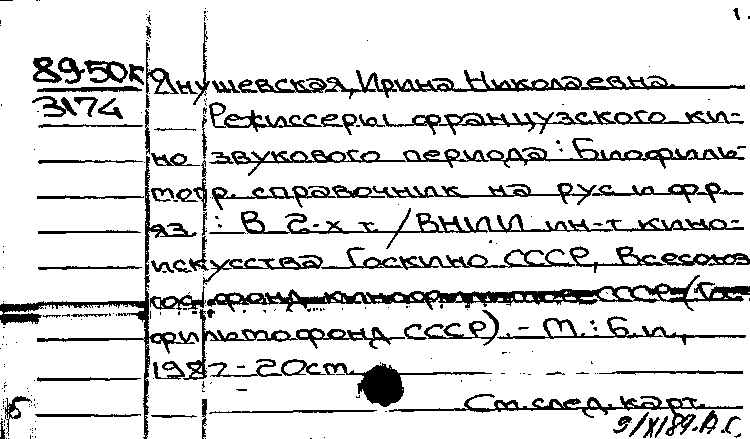 1.
89-50к Янушевская, Ирина Николаевна.
3174 Режиссеры французского ки-
но звукового периода : Биофиль-
могр. справочник на рус и фр.
яз. : В 2-х т. / ВНИИ ин-т кино-
искусства Госкино СССР, Всесоюз
гос фонд кинофильмов СССР (Гос-
фильмофонд СССР). - М. : Б.и.,
1987 - 20см.
См. след. карт.